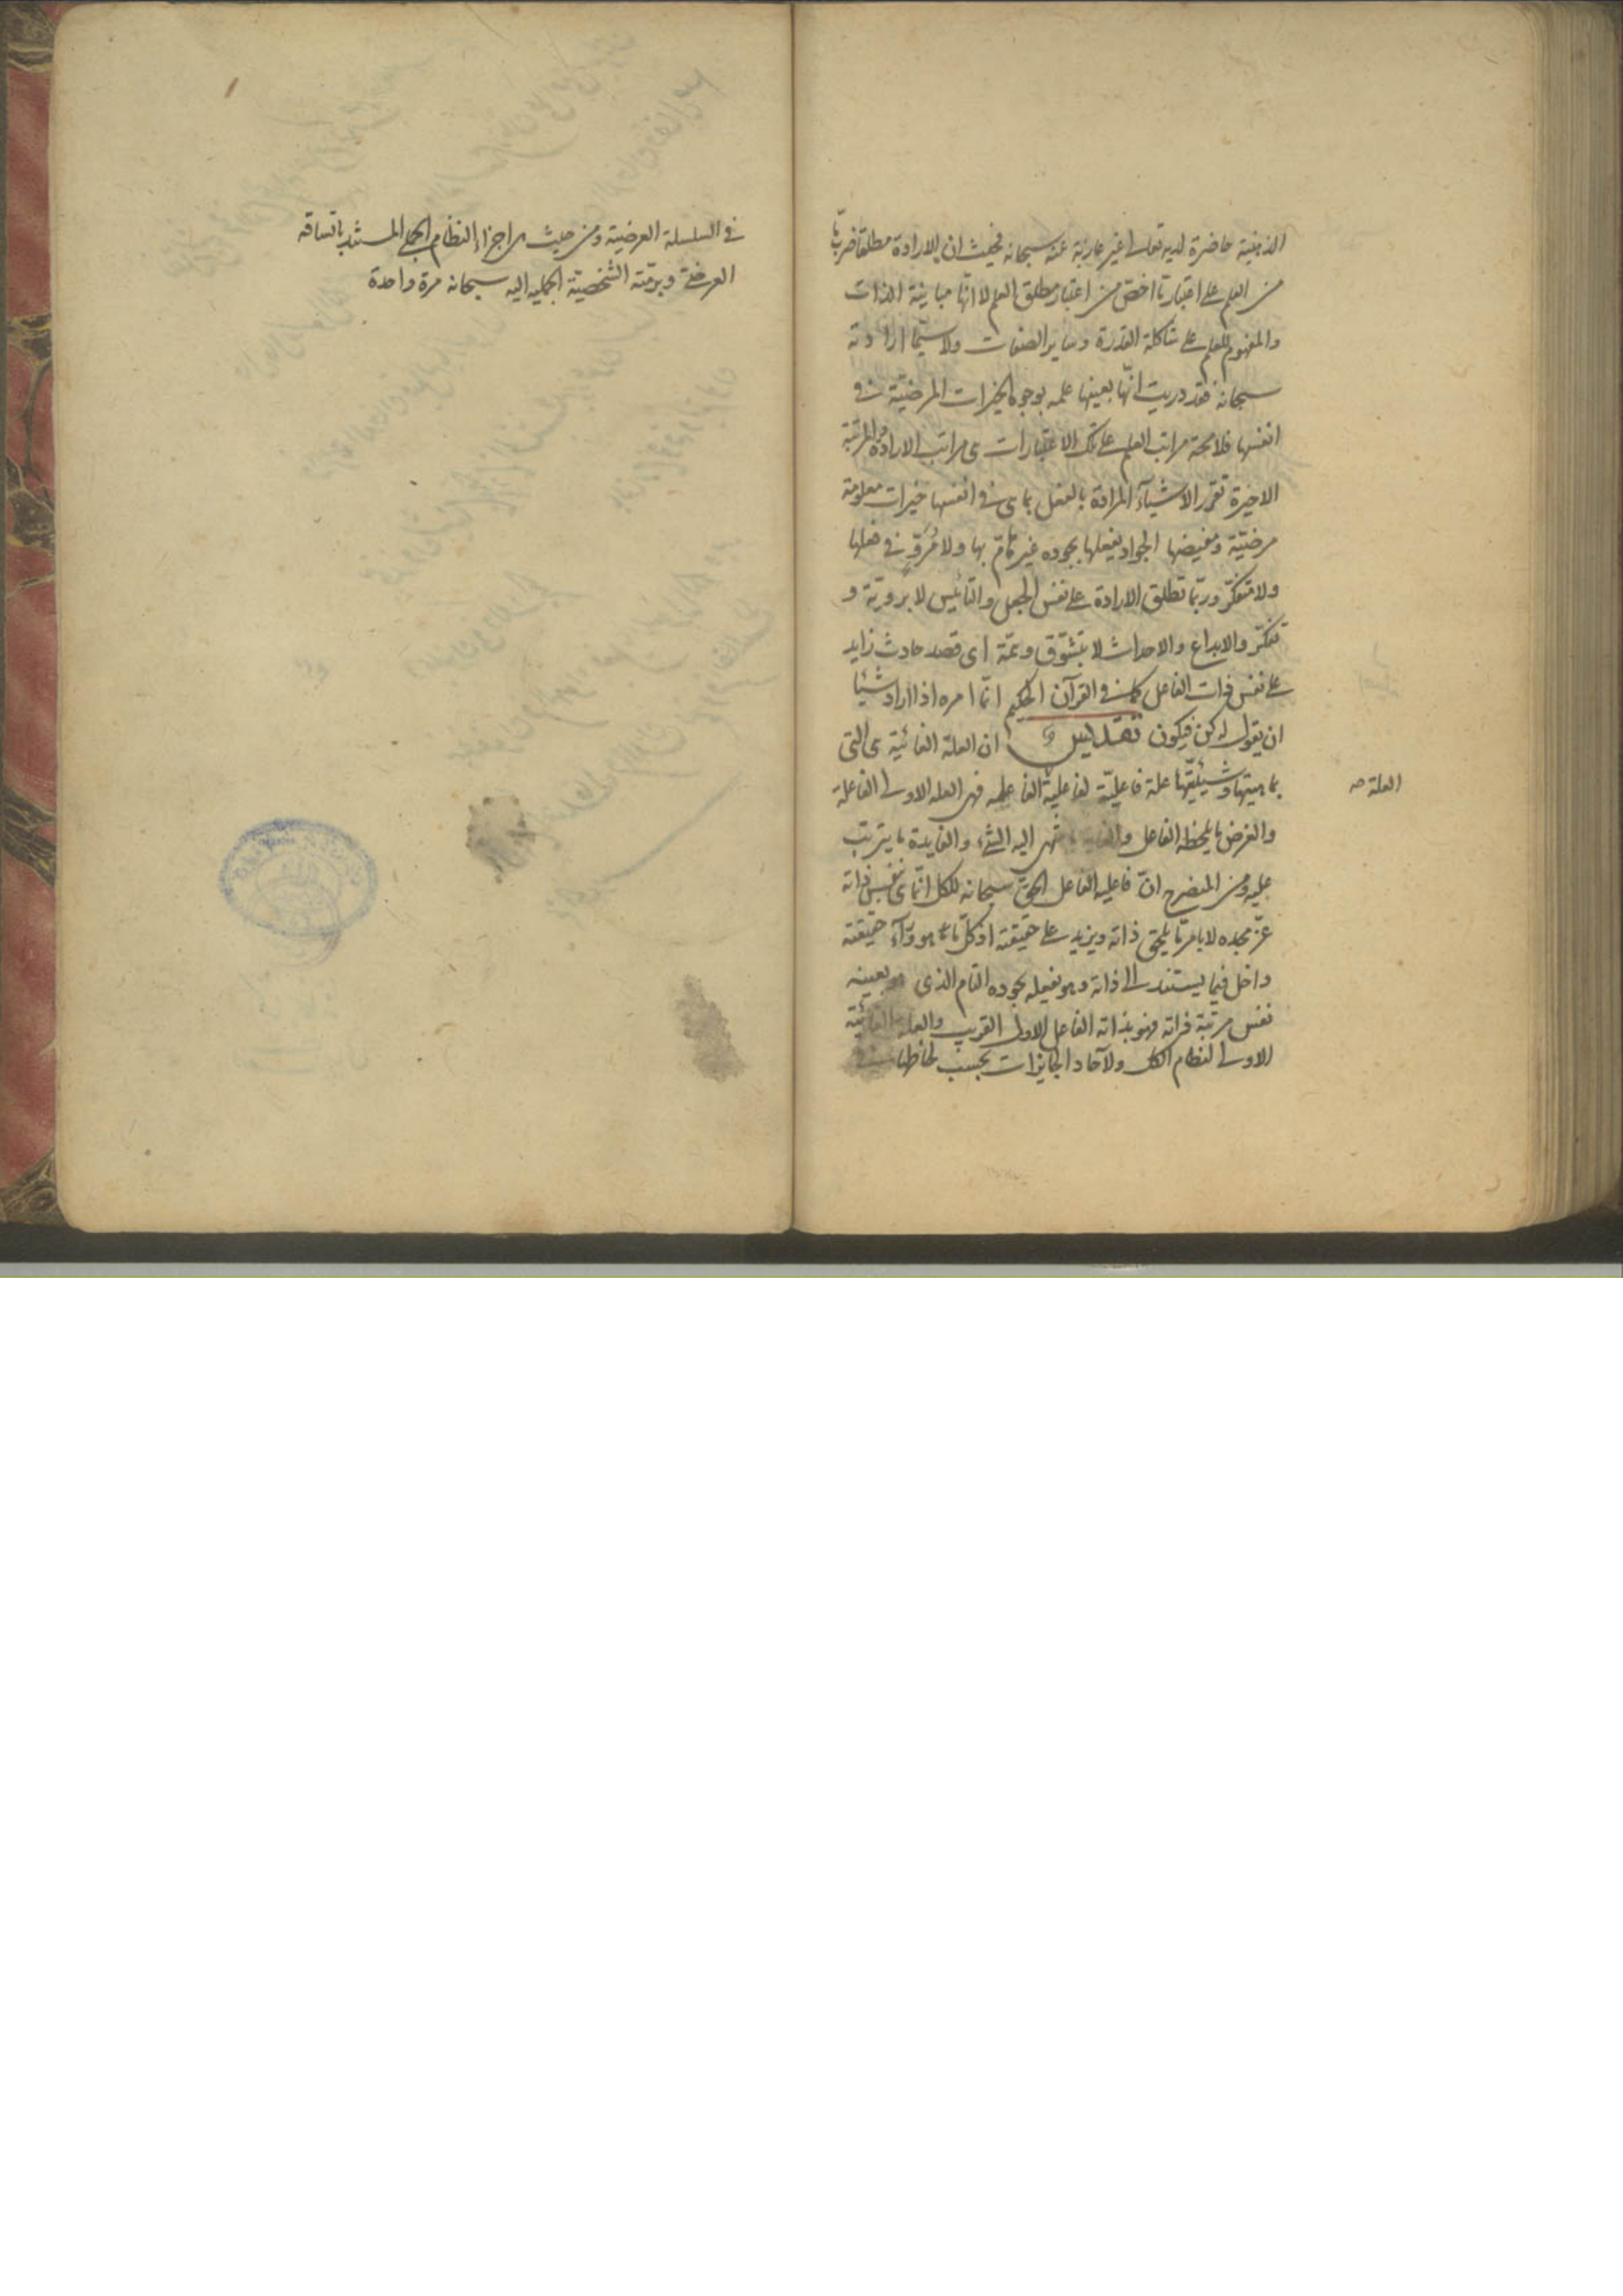 الذهنية حاضرة لديه تعالى غير عازبة عنه سبحانه فحيث ان الارادة مطلقا ضرب ما
من العلم على اعتبار ما اخصّ من اعتبار مطلق العلم لا انّها مباينة الذات
والمفهوم للعلم على شاكلة القدرة وساير الصفات ولا سيّما ارادته
سبحانه فقد دريت انّها بعينها علمه بوجوه الخيرات المرضيّة في
انفسها فلا محة مراتب العلم على تلك الاعتبارات هى مراتب الارادة والمرتبة
الاخيرة تقرر الاشيآء المرادة بالفعل بما هى في انفسها خيرات معلومة
مرضيّة ومفيضها الجواد يفعلها بجوده غير هامّ بها ولا مُرَوٍّ في فعلها
ولا متفكّر وربّما تطلق الارادة على نفس الجعل والتأييس لا بروية و
تفكّر والابداع والاحداث لا بتشوّق وهمّة اى قصد حادث زايد
على نفس ذات الفاعل كما في القرآن الحكيم انّما امره اذا اراد شيئا
ان يقول له كن فيكون تقديس ان العلة الغائية هى التى
بماهيتها وشيئيّتها علة فاعليّة لفاعلية الفاعلة فهى العلة الاولى الفاعلة
العلة صح
والغرض ما يلحظه الفاعل والغاية ما ينتهى اليه الشئ والفايدة ما يترتب
عليه ومن المنصرح انّ فاعلية الفاعل الحقّ سبحانه للكل انّما هى بنفس ذاته
عزّ مجده لا بامر ما يلحق ذاته ويزيد على حقيقته اذ كلّ ما هو ورآء حقيقته
داخل فيما يستند الى ذاته وهو يفعله بجوده التام الذى هو بعينه
نفس مرتبة ذاته فهو بذاته الفاعل الاول القريب والعلة الغائية
الاولى لنظام الكل ولآحاد الجايزات بحسب لحاظها في
في السلسلة العرضية ومن حيث هى اجزاء النظام الجملى المستند باتساقه
العرضى وبرمّته الشخصية الجملية اليه سبحانه مرة واحدة